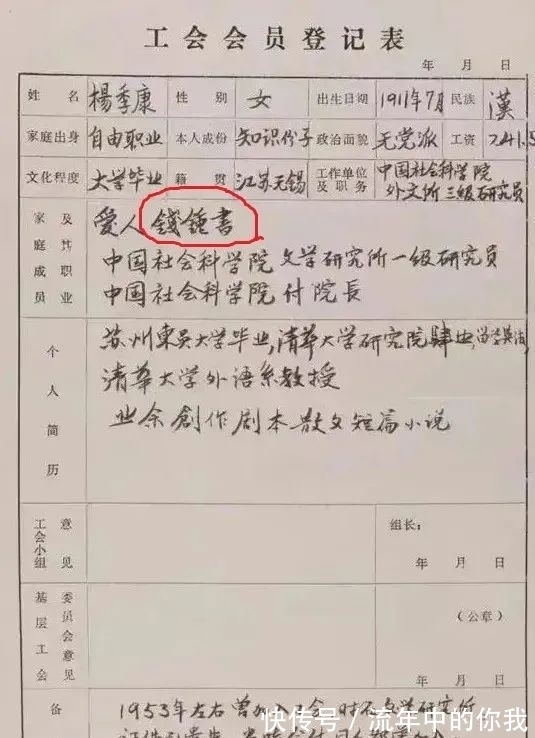 工会会员登记表
年 月 日
姓名 楊季康 性别 女 出生日期 1911年7月 民族 漢
家庭出身 自由职业 本人成份 知识份子 政治面貌 无党派 工资 241.5
文化程度 大学毕业 籍贯 江苏无锡 工作单位及职务 中国社会科学院
外文所 三级研究员
家庭成员及其职业 爱人 錢鍾書
中国社会科学院 文学研究所一级研究员
中国社会科学院 付院長
个人简历 苏州東吴大学毕业,清華大学研究院肆业,留学英法,
清華大学外语系教授
业余創作剧本散文短篇小说
工会小组意见 组长:
年 月 日
基层工会委员会意见 (公章)
年 月 日
备 1953年左右曾加入工会,
快传号/流年中的你我